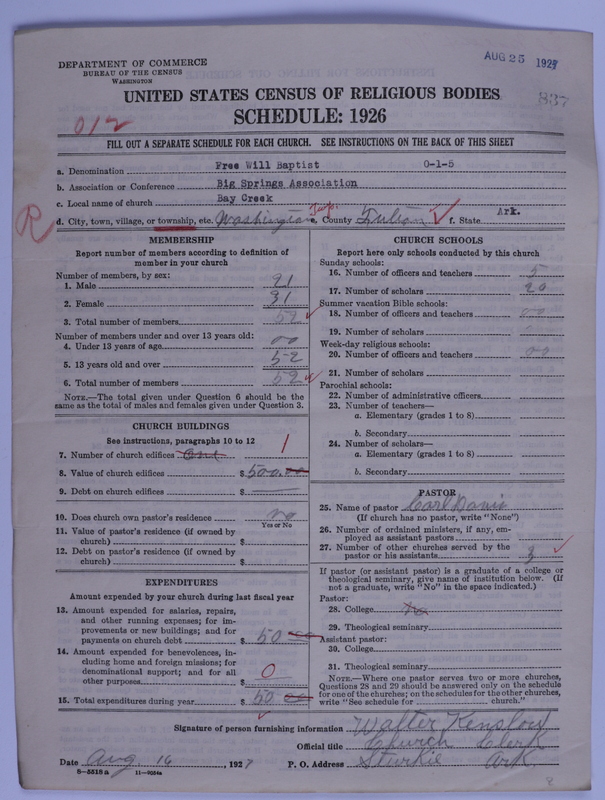 DEPARTMENT OF COMMERCE
BUREAU OF THE CENSUS
WASHINGTON
AUG 25 1927
837
UNITED STATES CENSUS OF RELIGIOUS BODIES
SCHEDULE: 1926
012
FILL OUT A SEPARATE SCHEDULE FOR EACH CHURCH. SEE INSTRUCTIONS ON THE BACK OF THIS SHEET
a. Denomination Free Will Baptist 0-1-5
b. Association or Conference Big Springs Association
c. Local name of church Bay Creek
R d. City, town, village, or township, etc. Washington Twp. e. County Fulton f. State Ark.
MEMBERSHIP
Report number of members according to definition of member in your church
Number of members, by sex:
1. Male 21
2. Female 31
3. Total number of members 52
Number of members under and over 13 years old:
4. Under 13 years of age 00
5. 13 years old and over 52
6. Total number of members 52
NOTE.—The total given under Question 6 should be the same as the total of males and females given under Question 3.
CHURCH BUILDINGS
See instructions, paragraphs 10 to 12
7. Number of church edifices One 1
8. Value of church edifices $ 500.00
9. Debt on church edifices $
10. Does church own pastor's residence No
Yes or No
11. Value of pastor's residence (if owned by church) $
12. Debt on pastor's residence (if owned by church) $
EXPENDITURES
Amount expended by your church during last fiscal year
13. Amount expended for salaries, repairs, and other running expenses; for improvements or new buildings; and for payments on church debt $ 50 00
14. Amount expended for benevolences, including home and foreign missions; for denominational support; and for all other purposes $ 0
15. Total expenditures during year $ 50 00
CHURCH SCHOOLS
Report here only schools conducted by this church
Sunday schools:
16. Number of officers and teachers 5
17. Number of scholars 20
Summer vacation Bible schools:
18. Number of officers and teachers 00
19. Number of scholars
Week-day religious schools:
20. Number of officers and teachers 00
21. Number of scholars
Parochial schools:
22. Number of administrative officers
23. Number of teachers—
a. Elementary (grades 1 to 8)
b. Secondary
24. Number of scholars—
a. Elementary (grades 1 to 8)
b. Secondary
PASTOR
25. Name of pastor Carl Davis
(If church has no pastor, write "None")
26. Number of ordained ministers, if any, employed as assistant pastors
27. Number of other churches served by the pastor or his assistants 3
If pastor (or assistant pastor) is a graduate of a college or theological seminary, give name of institution below. (If not a graduate, write "No" in the space indicated.)
Pastor:
28. College No
29. Theological seminary
Assistant pastor:
30. College
31. Theological seminary
NOTE.—Where one pastor serves two or more churches, Questions 28 and 29 should be answered only on the schedule for one of the churches; on the schedules for the other churches, write "See schedule for church.
Signature of person furnishing information Walter Kenslow
Official title Church Clerk
Date Aug 16, 1927 P. O. Address Sturkie Ark.
8-5518a 11-9054a